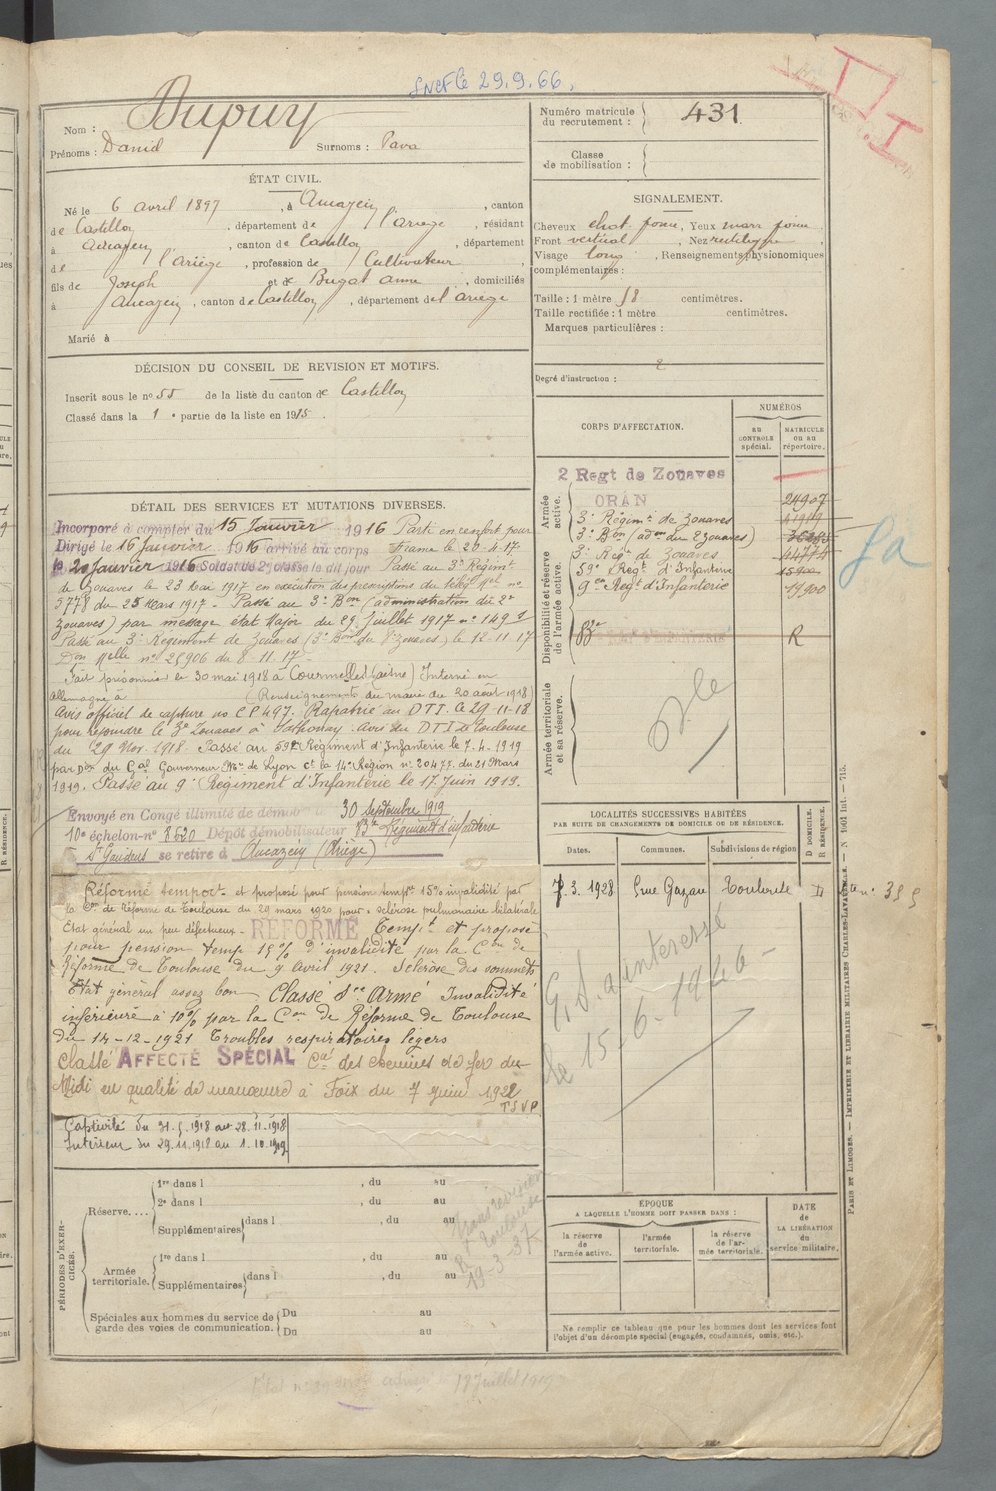 29.9.66.
Nom : Dupuy
Prénoms : Daniel Surnoms : Pava
ÉTAT CIVIL.
Né le 6 avril 1897, à Aucazein, canton
de Castillon, département de l'Ariège, résidant
à Aucazein, canton de Castillon, département
de l'Ariège, profession de Cultivateur
fils de Joseph et de Bugat Anne, domiciliés
à Aucazein, canton de Castillon, département de l'Ariège
Marié à
DÉCISION DU CONSEIL DE REVISION ET MOTIFS.
Inscrit sous le no 55 de la liste du canton de Castillon
Classé dans la 1e partie de la liste en 1915.
DÉTAIL DES SERVICES ET MUTATIONS DIVERSES.
Incorporé à compter du 15 Janvier 1916 Parti en renfort pour
Dirigé le 16 Janvier 1916 arrivé au corps France le 20-4-17
le 20 Janvier 1916 Soldat de 2e classe le dit jour Passé au 3e Régimt
de Zouaves le 23 Mai 1917 en exécution des prescriptions du télég. Mel no
5778 du 25 Mars 1917 - Passé au 3e Bon (administration du 2e
Zouaves) par message état Major du 29 Juillet 1917 no 149
Passé au 3e Régiment de Zouaves (3e Bon du 2e Zouaves) le 12.11.17
Don Melle no 25906 du 8.11.17 -
Fait prisonnier le 30 mai 1918 à Courmelles (Aisne) Interné en
Allemagne à (Renseignements du maire du 20 août 1918)
Avis officiel de capture no CP497. Rapatrié au DTI. le 29-11-18
pour rejoindre le 3e Zouaves à Sathonay. avis du DTI de Toulouse
du 29 Nov. 1918. Passé au 59e Régiment d'Infanterie le 7.4.1919
par Don du Gal Gouverneur Mre de Lyon Ct la 14e Région no 20477. du 21 Mars
1919. Passé au 9e Régiment d'Infanterie le 17 Juin 1919.
Envoyé en Congé illimité de démob le 30 Septembre 1919
10e échelon-no 8620 Dépôt démobilisateur 83e Régiment d'infanterie
St Gaudens se retire à Aucazein (Ariège)
Réformé temport et proposé pour pension tempre 15% invalidité par
la Con de réforme de Toulouse du 29 mars 1920 pour : sclérose pulmonaire bilatérale
Etat général un peu défectueux - REFORMÉ Tempt et proposé
pour pension temp 15% d'invalidité par la Con de
Réforme de Toulouse du 9 Avril 1921. Sclérose des sommets
Etat général assez bon - Classé Sce Armé Invalidité
inférieure à 10% par la Con de Réforme de Toulouse
du 14-12-1921 Troubles respiratoires légers
Classé AFFECTÉ SPÉCIAL Cie des chemins de fer du
Midi en qualité de manœuvre à Foix du 7 juin 1922
TSVP
Captivité du 31.5.1918 au 28.11.1918
Intérieur du 29.11.1918 au 1.10.1919
PÉRIODES D'EXERCICES.
Réserve....
1re dans l , du au
2e dans l , du au
Supplémentaires dans l , du au
Armée territoriale.
1re dans l , du au
Supplémentaires dans l , du au
Spéciales aux hommes du service de garde des voies de communication.
Du au
Du au
Toulouse
19-3-37
17 Juillet 1919
Numéro matricule du recrutement : 431
Classe de mobilisation :
SIGNALEMENT.
Cheveux chat. foncé, Yeux marr. foncé
Front vertical, Nez rectiligne
Visage long, Renseignements physionomiques
complémentaires :
Taille : 1 mètre 58 centimètres.
Taille rectifiée : 1 mètre centimètres.
Marques particulières :
Degré d'instruction : 2
CORPS D'AFFECTATION.
NUMÉROS
AU CONTROLE spécial.
MATRICULE ou au répertoire.
Armée active.
2 Regt de Zouaves
ORAN 24907
3e Régimt de Zouaves 41919
3e Bon (adon du 2 Zouaves)
Disponibilité et réserve de l'armée active.
3e Régt de Zouaves 44778
59e Régt d'Infanterie 15900
9em Regt d'Infanterie 19900
R
Armée territoriale et sa réserve.
LOCALITÉS SUCCESSIVES HABITÉES
PAR SUITE DE CHANGEMENTS DE DOMICILE OU DE RÉSIDENCE.
Dates. Communes. Subdivisions de région D DOMICILE. R RÉSIDENCE.
7.3.1928 Toulouse D
le 15-6-1946 -
ÉPOQUE
A LAQUELLE L'HOMME DOIT PASSER DANS :
la réserve de l'armée active.
l'armée territoriale.
la réserve de l'armée territoriale.
DATE de LA LIBÉRATION du service militaire.
Ne remplir ce tableau que pour les hommes dont les services font
l'objet d'un décompte spécial (engagés, condamnés, omis, etc.).
PARIS ET LIMOGES. — IMPRIMERIE ET LIBRAIRIE MILITAIRES CHARLES-LAVAUZELLE. — N 1061 Int. — 715.